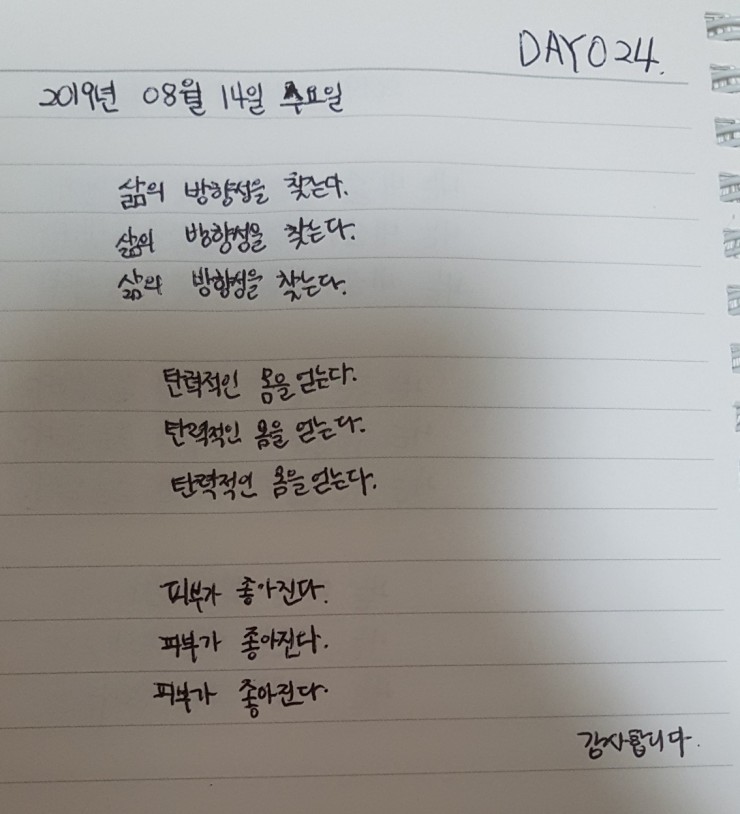 DAY024.
2019년 08월 14일 수요일
삶의 방향성을 찾는다.
삶의 방향성을 찾는다.
삶의 방향성을 찾는다.
탄력적인 몸을 얻는다.
탄력적인 몸을 얻는다.
탄력적인 몸을 얻는다.
피부가 좋아진다.
피부가 좋아진다.
피부가 좋아진다.
감사합니다.